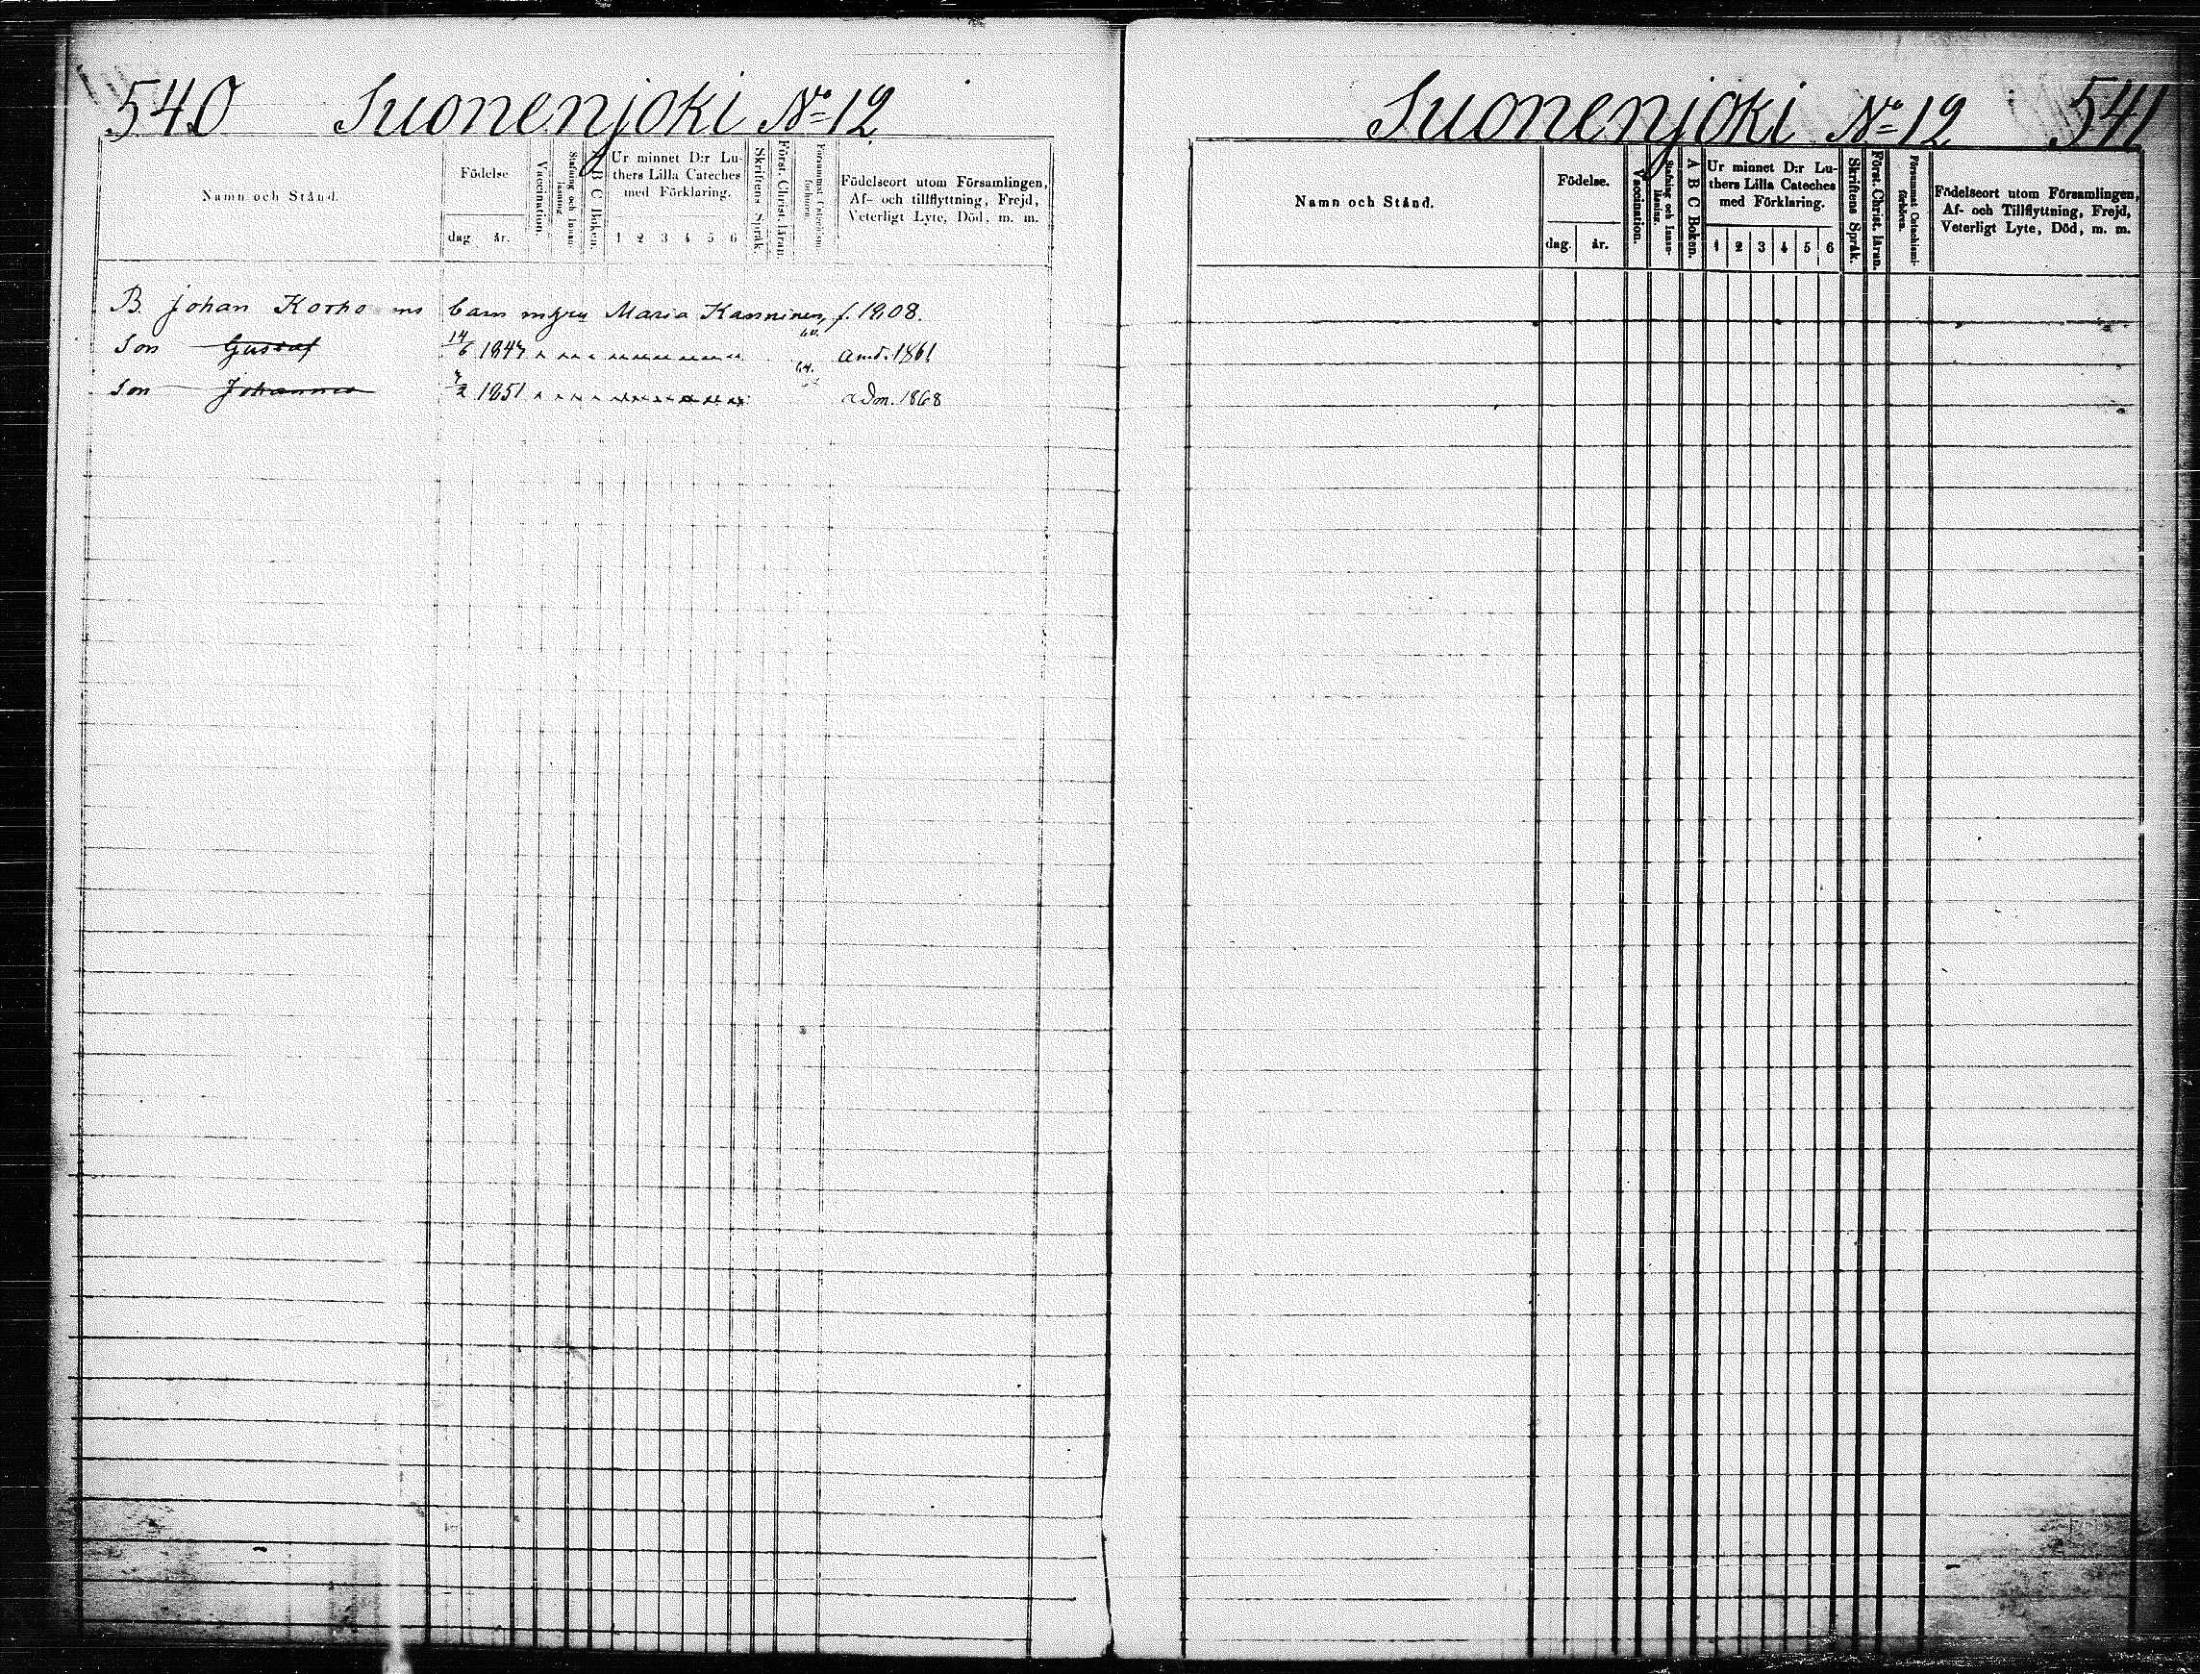 540 Suonenjoki No 12
Namn och Stånd.
Födelse
dag år.
Vaccination.
Stafning och Innanläsning
A B C Boken.
Ur minnet D:r Luthers Lilla Cateches med Förklaring.
1 2 3 4 5 6
Skriftens Språk.
Först. Christ. läran.
Försummat Catechismi förhören.
Födelseort utom Församlingen,
Af- och tillflyttning, Frejd,
Veterligt Lyte, Död, m. m.
B. Johan Korhonens barn m Maria Kanninen, f. 1808.
Son Gustaf 14/6 1843 60. amd. 1861
Son Johannes 7/2 1851 64. adm. 1868
Suonenjoki No 12 541
Namn och Stånd.
Födelse.
dag. år.
Vaccination.
Stafning och Innanläsning.
A B C Boken.
Ur minnet D:r Luthers Lilla Cateches med Förklaring.
1 2 3 4 5 6
Skriftens Språk.
Först. Christ. läran.
Försummat Catechismi-förhören.
Födelseort utom Församlingen,
Af- och Tillflyttning, Frejd,
Veterligt Lyte, Död, m. m.